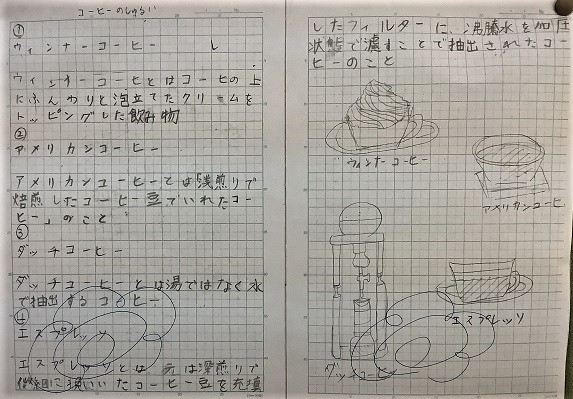 コーヒーのしゅるい
①
ウィンナーコーヒー
ウィンナーコーヒーとはコーヒーの上
にふんわりと泡立てたクリームを
トッピングした飲み物
②
アメリカンコーヒー
アメリカンコーヒーとは「浅煎りで
焙煎したコーヒー豆でいれたコー
ヒー」のこと
③
ダッチコーヒー
ダッチコーヒーとは湯ではなく水
で抽出するコーヒー
④
エスプレッソ
エスプレッソとは 元は深煎りで
微細に挽いたコーヒー豆を充填
したフィルターに、沸騰水を加圧
状態で濾すことで抽出されたコー
ヒーのこと
ウィンナーコーヒー
アメリカンコーヒー
エスプレッソ
ダッチコーヒー